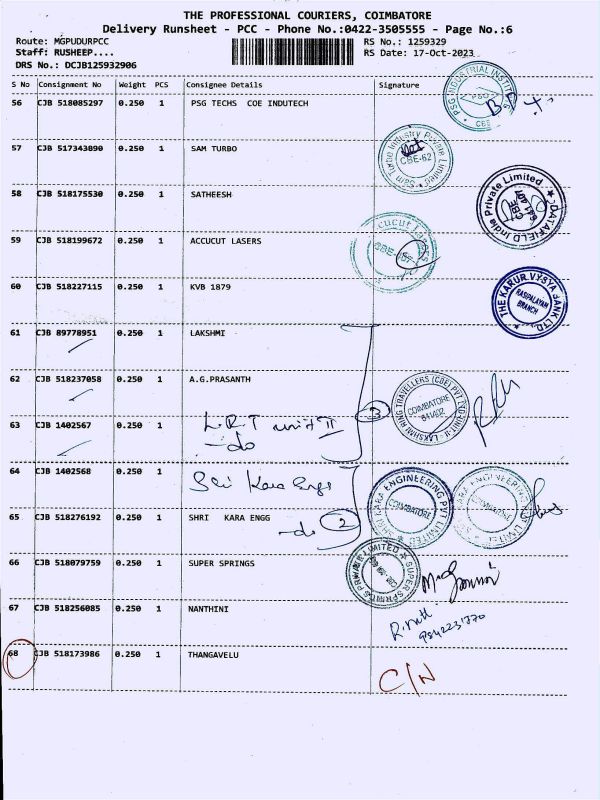 THE PROFESSIONAL COURIERS, COIMBATORE
Delivery Runsheet - PCC - Phone No.:0422-3505555 - Page No.:6
Route: MGPUDURPCC RS No.: 1259329
Staff: RUSHEEP.... RS Date: 17-Oct-2023
DRS No.: DCJB125932906
S No Consignment No Weight PCS Consignee Details Signature
56 CJB 518085297 0.250 1 PSG TECHS COE INDUTECH
PSG INDUSTRIAL INSTITUTE
57 CJB 517343890 0.250 1 SAM TURBO
Sam Turbo Industry Private Limited
CBE-62
58 CJB 518175530 0.250 1 SATHEESH
DATAFIELD India Private Limited
CBE
641 407
59 CJB 518199672 0.250 1 ACCUCUT LASERS
60 CJB 518227115 0.250 1 KVB 1879
THE KARUR VYSYA BANK LTD.
BRANCH
61 CJB 89778951 0.250 1 LAKSHMI
62 CJB 518237058 0.250 1 A.G.PRASANTH
LAKSHMI RING TRAVELLERS (CBE) PVT LTD UNIT-II
COIMBATORE
641402
3
63 CJB 1402567 0.250 1 L.R.T unit II
-do
64 CJB 1402568 0.250 1 Sri Kara Engg
65 CJB 518276192 0.250 1 SHRI KARA ENGG -do 2
SHRI KARA ENGINEERING PVT LIMITED
COIMBATORE
KARA ENGINEERING PVT LIMITED
COIMBATORE
66 CJB 518079759 0.250 1 SUPER SPRINGS
SUPER SPRINGS PRIVATE LIMITED
67 CJB 518256085 0.250 1 NANTHINI
68 CJB 518173986 0.250 1 THANGAVELU
C/N